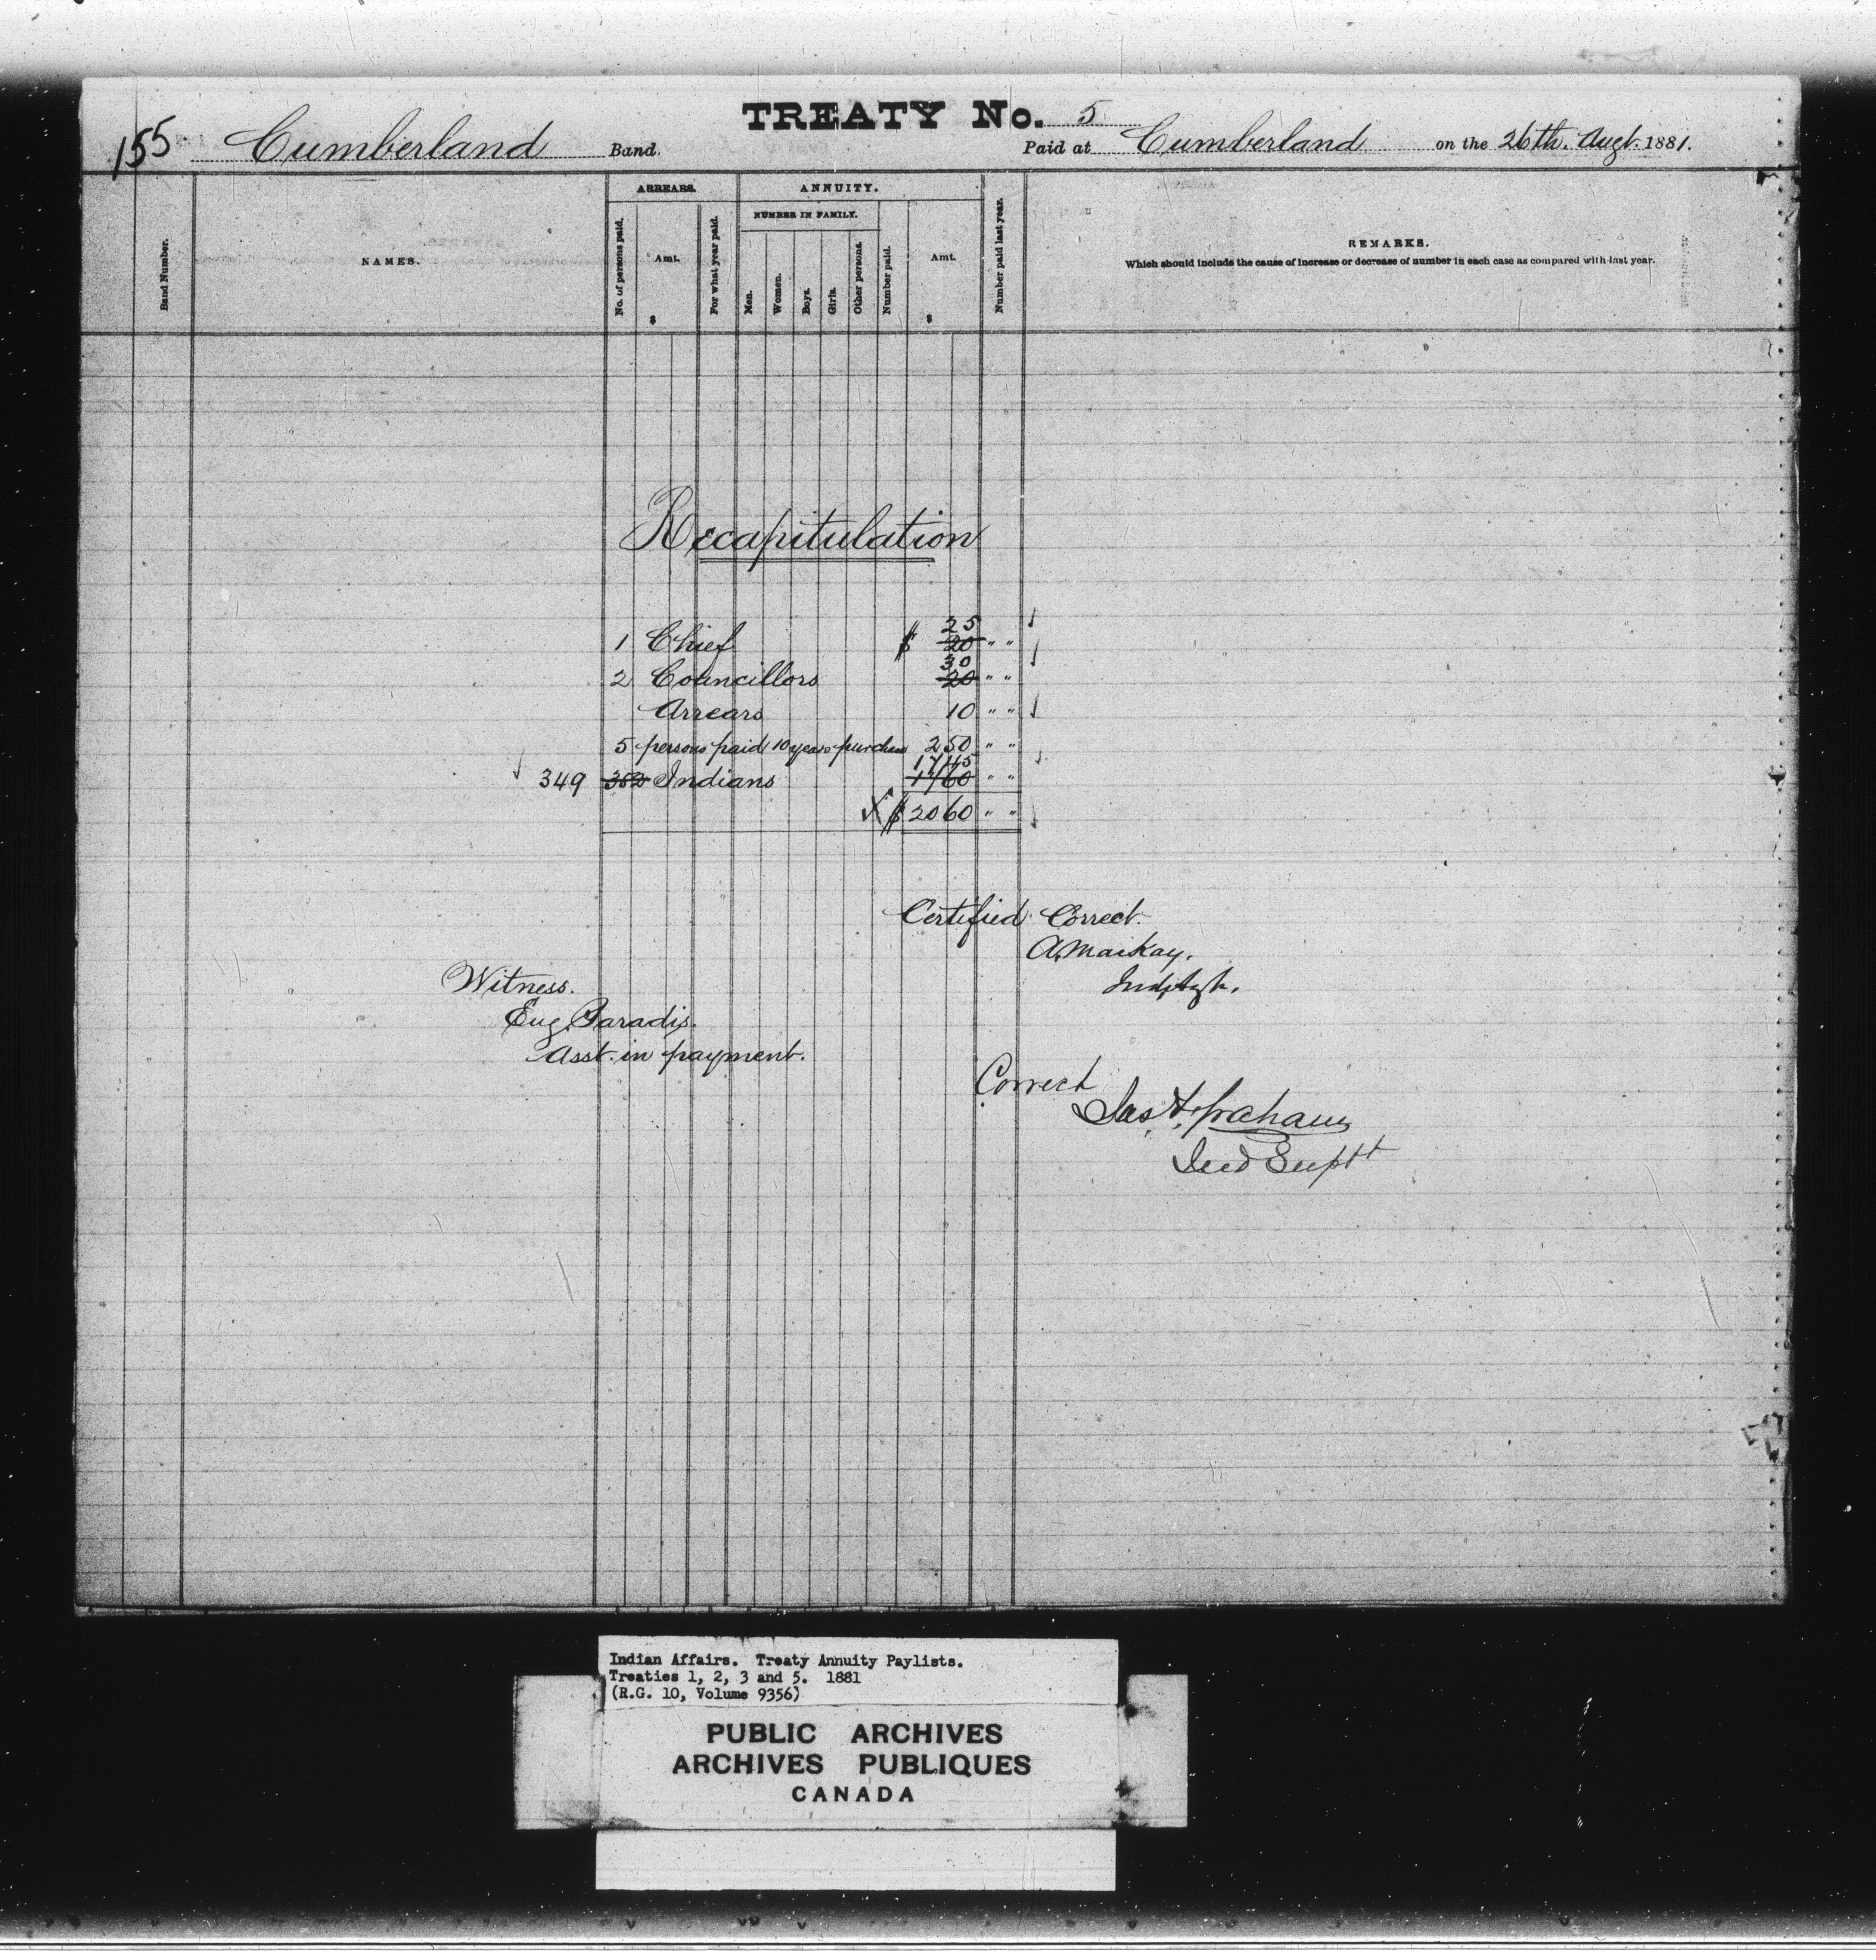 TREATY No. 5
155 Cumberland Band. Paid at Cumberland on the 26th. Augt. 1881.
ARREARS. ANNUITY.
NUMBER IN FAMILY.
Band Number. NAMES. No. of persons paid. Amt. $ For what year paid. Men. Women. Boys. Girls. Other persons. Number paid. Amt. $ Number paid last year. REMARKS.
Which should include the cause of increase or decrease of number in each case as compared with last year.
Recapitulation
25
1 Chief $ 20 " "
30
2 Councillors 20 " "
Arrears 10 " "
5 persons paid 10 years purchase 250 " "
1745
349 352 Indians 1760 " "
$ 2060 " "
Certified Correct.
A. MacKay.
Ind. Agt.
Witness.
Eug. Paradis.
Asst. in payment.
Correct
Jas. F. Graham
Ind Supt
Indian Affairs. Treaty Annuity Paylists.
Treaties 1, 2, 3 and 5. 1881
(R.G. 10, Volume 9356)
PUBLIC ARCHIVES
ARCHIVES PUBLIQUES
CANADA